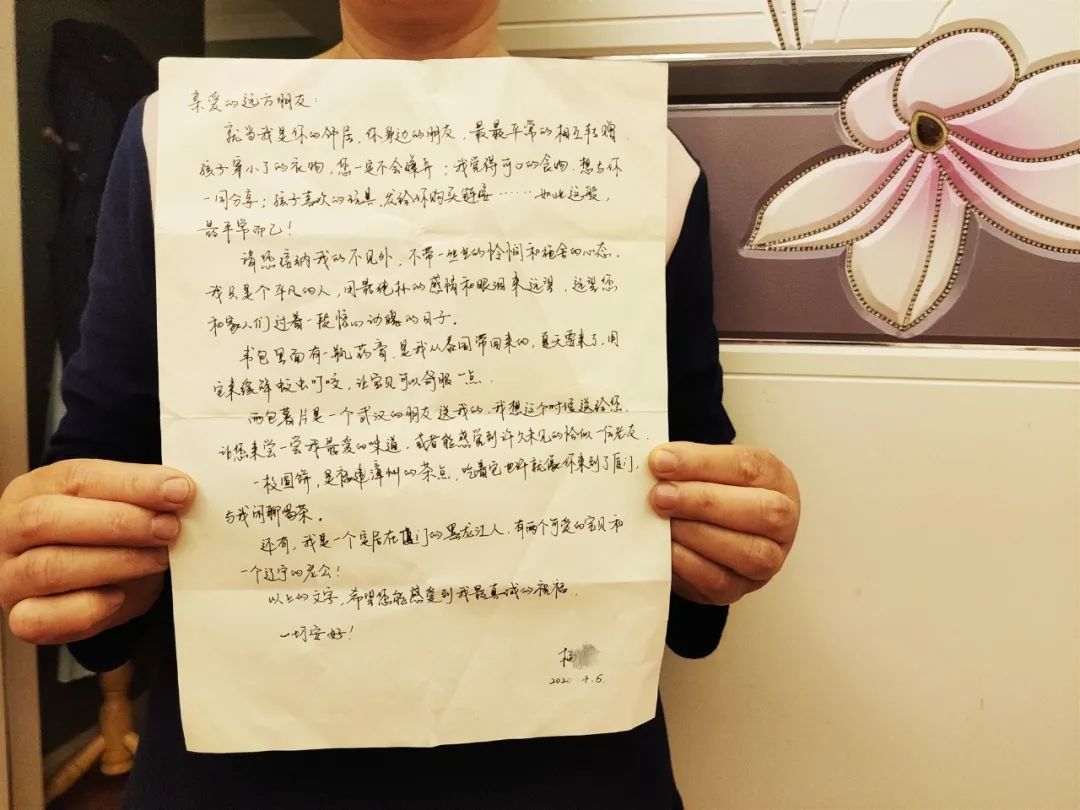 亲爱的远方朋友：
就当我是你的邻居，你身边的朋友，最最平常的相互转赠。
孩子穿小了的衣物，您一定不会嫌弃；我觉得可口的食物，想与你
一同分享；孩子喜欢的玩具，发给你购买链接……如此这般，
最平常而已！
请您接纳我的不见外，不带一丝丝的怜悯和施舍的心态。
我只是个平凡的人，用最纯朴的感情和眼泪来远望，远望您
和家人们过着一段惊心动魄的日子。
书包里面有一瓶药膏，是我从泰国带回来的，夏天要来了，用
它来缓解蚊虫叮咬，让宝贝可以舒服一点。
两包薯片是一个武汉的朋友送我的，我想这个时候送给您，
让您来尝一尝我最爱的味道，或者能感觉到许久未见的恰似一位老友。
一枚圆饼，是福建漳州的茶点，吃着它也许就像你来到了厦门，
与我闲聊喝茶。
还有，我是一个定居在厦门的黑龙江人，有两个可爱的宝贝和
一个辽宁的老公！
以上的文字，希望您能感受到我最真诚的祝福。
一切安好！
杨
2020 4.5.